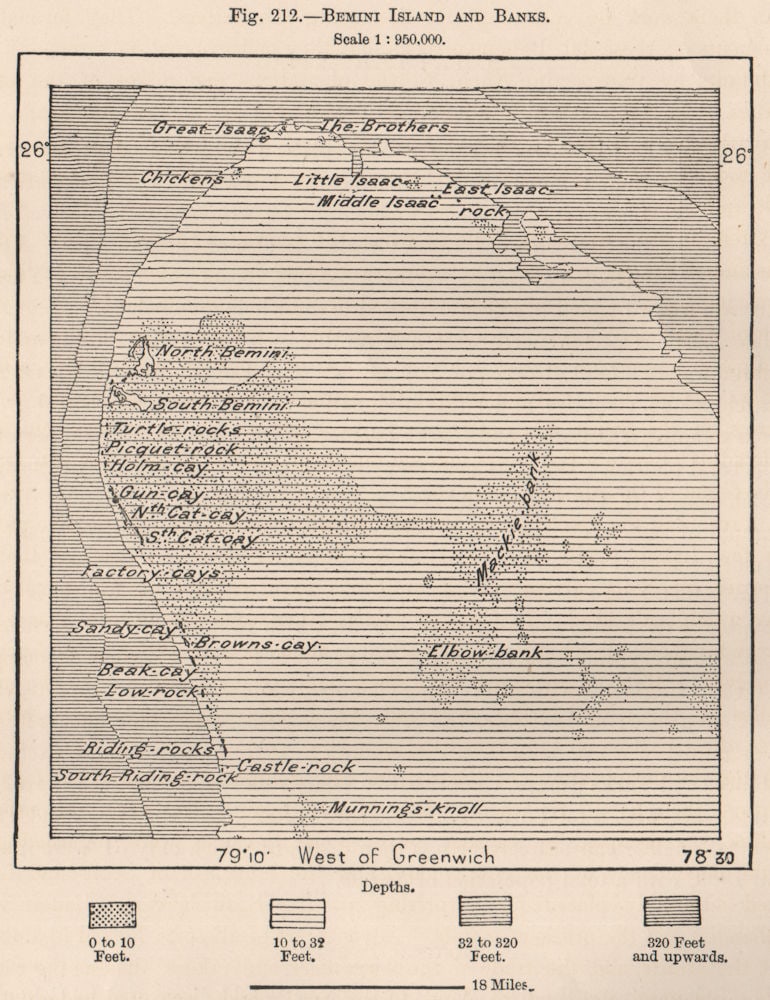 Fig. 212.—Bemini Island and Banks.
Scale 1 : 950.000.
26°
26°
Great Isaac
The Brothers
Chickens
Little Isaac
Middle Isaac
East Isaac-
rock
North Bemini
South Bemini
Turtle-rocks
Picquet-rock
Holm-cay
Gun-cay
Nth Cat-cay
Sth Cat-cay
Mackie-bank
Factory-cays
Sandy-cay
Browns-cay
Elbow-bank
Beak-cay
Low-rock
Riding-rocks
Castle-rock
South Riding-rock
Munnings-Knoll
79°10'
West of Greenwich
78°30
Depths.
0 to 10
Feet.
10 to 32
Feet.
32 to 320
Feet.
320 Feet
and upwards.
18 Miles.